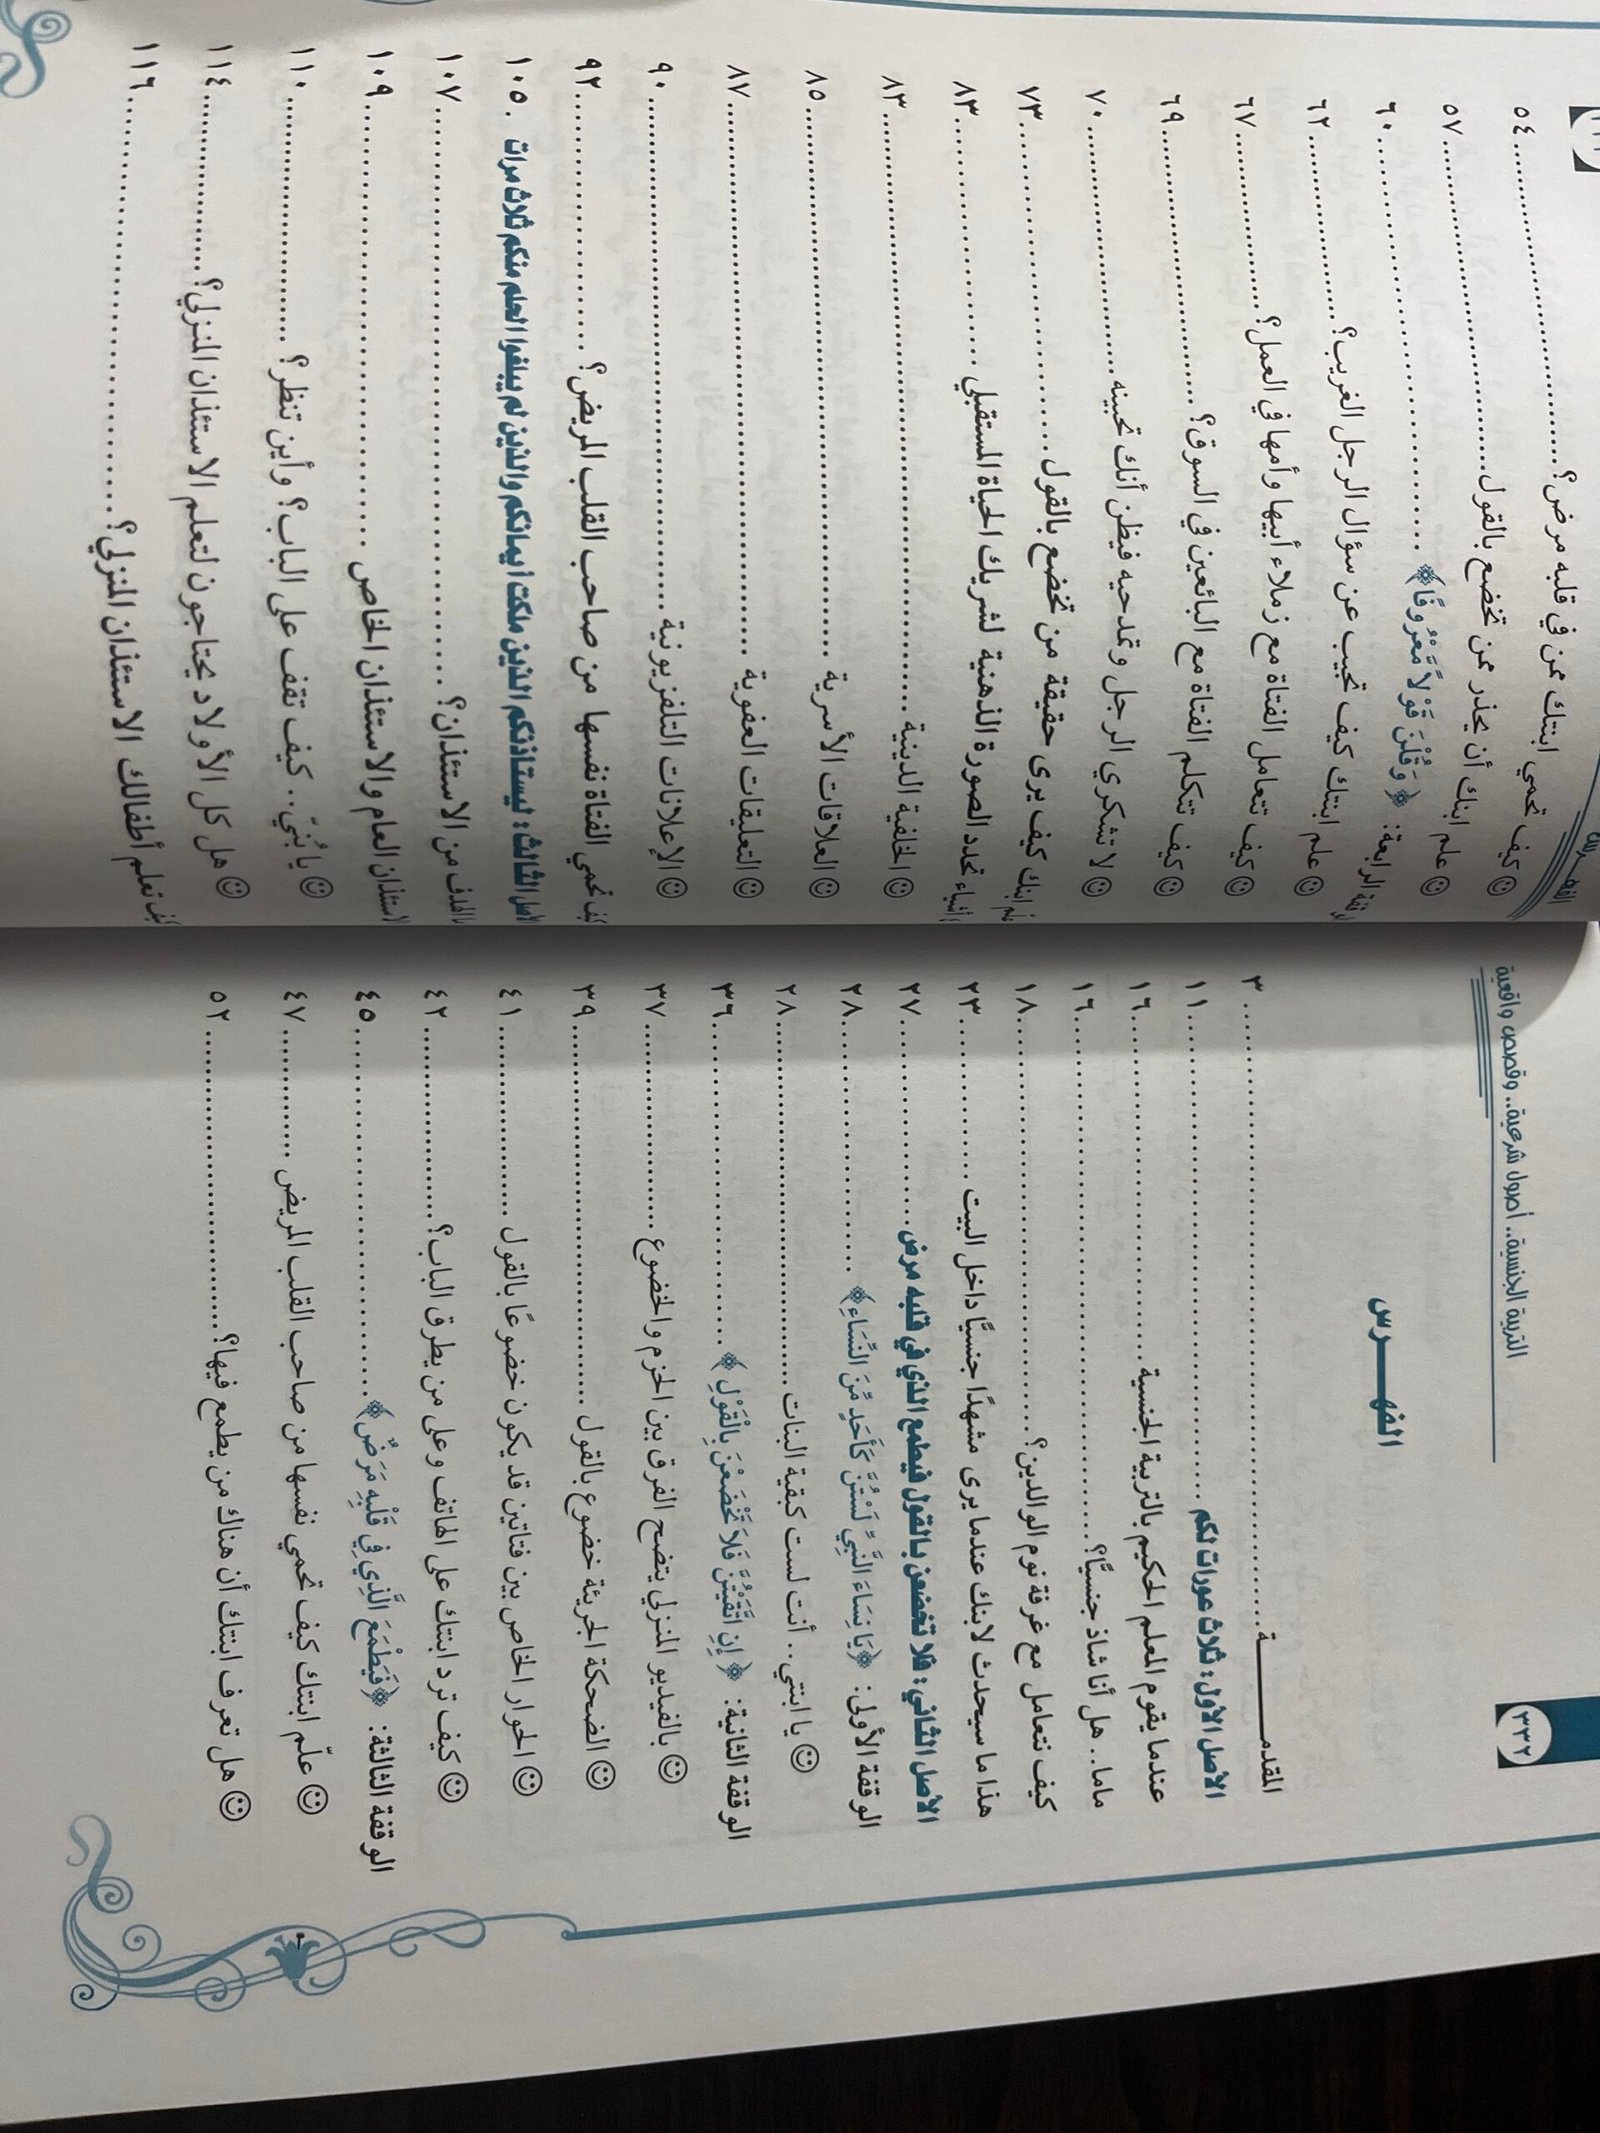 ٣٣٢
التربية الجنسية.. أصول شرعية.. وقصص واقعية
الفهـــرس
المقدمـــــــــة ........ ٣
الأصل الأول: ثلاث عورات لكم ........ ١١
عندما يقوم المعلم الحكيم بالتربية الجنسية ........ ١٦
ماما.. هل أنا شاذ جنسيًا؟ ........ ١٦
كيف نتعامل مع غرفة نوم الوالدين؟ ........ ١٨
هذا ما سيحدث لابنك عندما يرى مشهدًا جنسيًا داخل البيت ........ ٢٣
الأصل الثاني: فلا تخضعن بالقول فيطمع الذي في قلبه مرض ........ ٢٧
الوقفة الأولى: ﴿يَا نِسَاءَ النَّبِيِّ لَسْتُنَّ كَأَحَدٍ مِّنَ النِّسَاءِ﴾ ........ ٢٨
☺ يا ابنتي.. أنت لست كبقية البنات ........ ٢٨
الوقفة الثانية: ﴿إِنِ اتَّقَيْتُنَّ فَلَا تَخْضَعْنَ بِالْقَوْلِ﴾ ........ ٣٦
☺ بالفيديو المنزلي يتضح الفرق بين الحزم والخضوع ........ ٣٧
☺ الضحكة الجريئة خضوع بالقول ........ ٣٩
☺ الحوار الخاص بين فتاتين قد يكون خضوعًا بالقول ........ ٤١
☺ كيف ترد ابنتك على الهاتف وعلى من يطرق الباب؟ ........ ٤٢
الوقفة الثالثة: ﴿فَيَطْمَعَ الَّذِي فِي قَلْبِهِ مَرَضٌ﴾ ........ ٤٥
☺ علّم ابنتك كيف تحمي نفسها من صاحب القلب المريض ........ ٤٧
☺ هل تعرف ابنتك أن هناك من يطمع فيها؟ ........ ٥٢
☺ كيف تحمي ابنتك ممن في قلبه مرض؟ ........ ٥٤
☺ علم ابنك أن يحذر ممن تخضع بالقول ........ ٥٧
الرابعة: ﴿وَقُلْنَ قَوْلًا مَّعْرُوفًا﴾ ........ ٦٠
☺ علم ابنتك كيف تجيب عن سؤال الرجل الغريب؟ ........ ٦٢
☺ كيف تتعامل الفتاة مع زملاء أبيها وأمها في العمل؟ ........ ٦٧
☺ كيف تتكلم الفتاة مع البائعين في السوق؟ ........ ٦٩
☺ لا تشكري الرجل وتمدحيه فيظن أنك تحبينه ........ ٧٠
علم ابنك كيف يرى حقيقة من تخضع بالقول ........ ٧٣
أشياء تحدد الصورة الذهنية لشريك الحياة المستقبلي ........ ٨٣
☺ الخلفية الدينية ........ ٨٣
☺ العلاقات الأسرية ........ ٨٥
☺ التعليقات العفوية ........ ٨٧
☺ الإعلانات التلفزيونية ........ ٩٠
كيف تحمي الفتاة نفسها من صاحب القلب المريض؟ ........ ٩٢
الأصل الثالث: ليستأذنكم الذين ملكت أيمانكم والذين لم يبلغوا الحلم منكم ثلاث مرات ........ ١٠٥
ما الهدف من الاستئذان؟ ........ ١٠٧
الاستئذان العام والاستئذان الخاص ........ ١٠٩
☺ يا بُنيّ.. كيف تقف على الباب؟ وأين تنظر؟ ........ ١١٠
☺ هل كل الأولاد يحتاجون لتعلم الاستئذان المنزلي؟ ........ ١١٤
كيف تعلم أطفالك الاستئذان المنزلي؟ ........ ١١٦